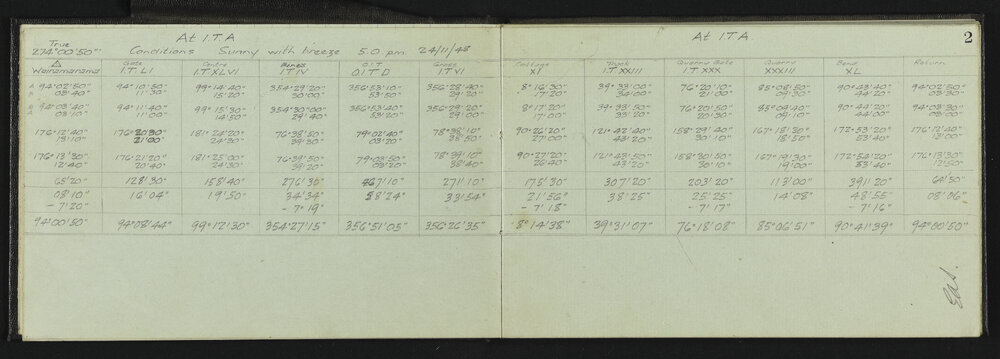 At I.T.A At ITA 2
True
274°00'50"
Conditions Sunny with breeze 5.0 pm 24/11/48
Δ Gate Centre Pines O.I.T Grass Cottage Trunk Quarry Gate Quarry Bend Return
Wainamarama I.T LI I.T.XLVI IT IV O.I T D I.T VI XI I.T XXIII I.T XXX XXXIII XL
A 94°02'50" 94°10'50" 99°14'40" 354°29'20" 356°53'10" 356°28'40" 8°16'30" 39°33'00" 76°20'10" 85°08'50" 90°43'40" 94°02'50"
B 03'40" 11'30" 15'20" 30'00" 53'50" 29'20" 17'20" 34'00" 21'00" 09'30" 44'20" 03'30"
B 94°03'40" 94°11'40" 99°15'30" 354°30'00" 356°53'40" 356°29'20" 8°17'20" 39°33'50" 76°20'50" 85°09'40" 90°44'20" 94°03'30"
A 03'10" 11'00" 14'50" 29'40" 53'20" 29'00" 17'00" 33'20" 20'30" 09'10" 44'00" 03'00"
176°12'40" 176°20'30" 181°24'20" 76°38'50" 79°02'40" 78°38'10" 90°26'20" 121°42'40" 158°29'40" 167°18'30" 172°53'20" 176°12'40"
13'10" 21'00" 24'30" 39'30" 03'20" 38'50" 27'00" 43'20" 30'10" 18'50" 53'40" 13'00"
176°13'30" 176°21'20" 181°25'00" 76°39'50" 79°03'50" 78°39'10" 90°27'20" 121°43'50" 158°30'50" 167°19'30" 172°54'20" 176°13'30"
12'40" 20'40" 24'30" 39'20" 03'20" 38'40" 26'40" 43'20" 30'10" 19'00" 53'40" 12'50"
65'20" 128'30" 158'40" 276'30" 467'10" 271'10" 175'30" 307'20" 203'20" 113'00" 391'20" 64'50"
08'10" 16'04" 19'50" 34'34" 58'24" 33'54" 21'56" 38'25" 25'25" 14'08" 48'55" 08'06"
- 7'20" - 7'19" - 7'18" - 7'17" - 7'16"
94°00'50" 94°08'44" 99°12'30" 354°27'15" 356°51'05" 356°26'35" 8°14'38" 39°31'07" 76°18'08" 85°06'51" 90°41'39" 94°00'50"